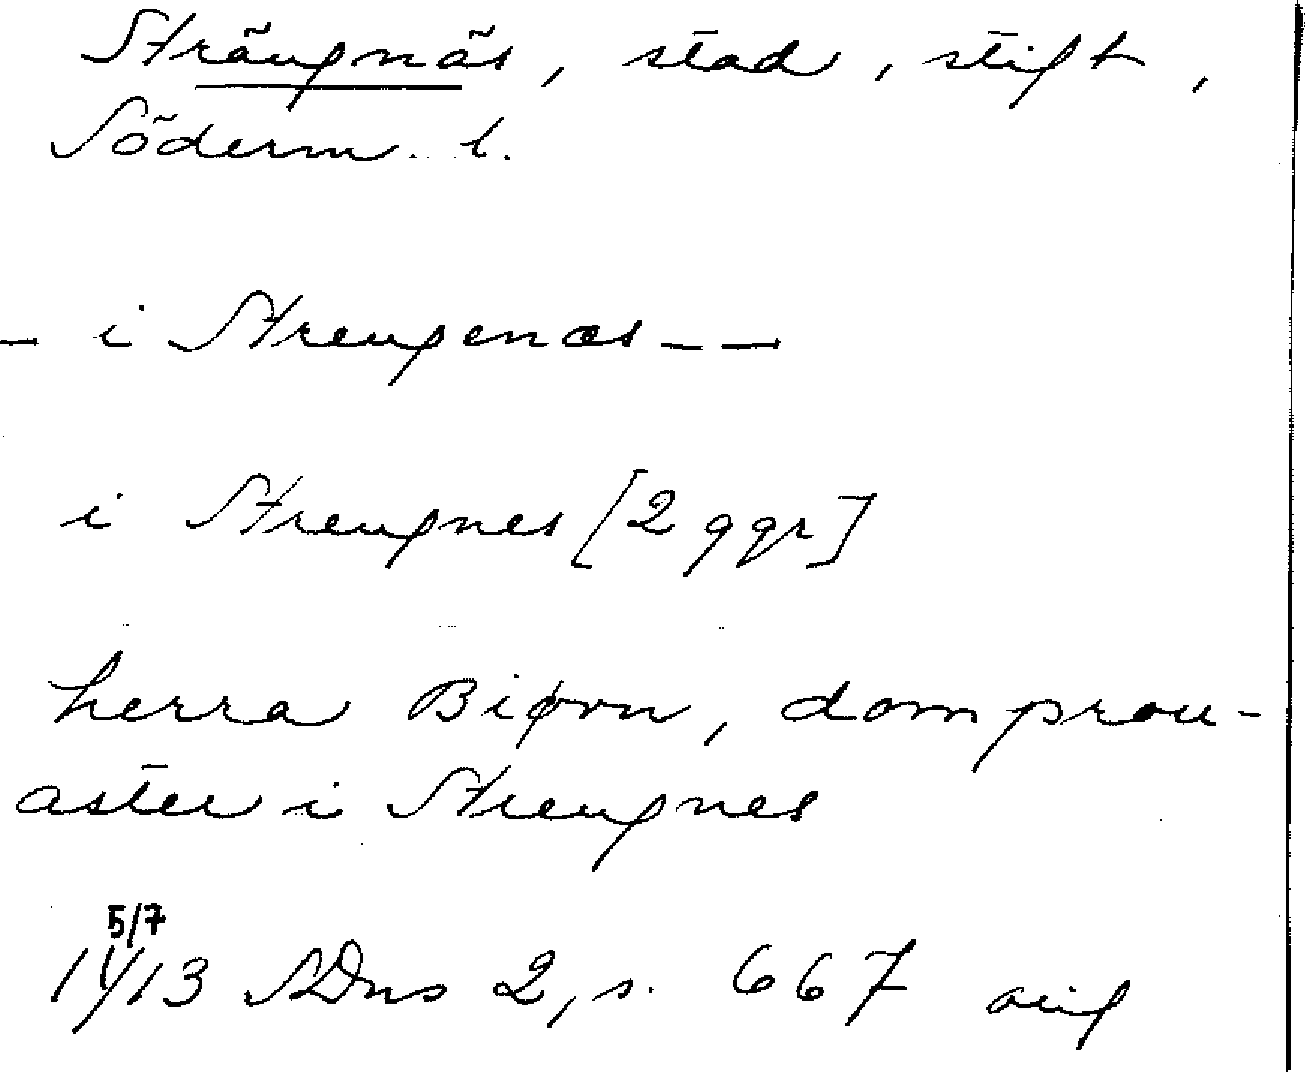 Strängnäs, stad, stift,
Söderm. l.
— i Strengenæs — —
i Strengnes [2 ggr]
herra Biørn, domprou-
aster i Strengnes
5/7
1413 SDns 2, s. 667 orig